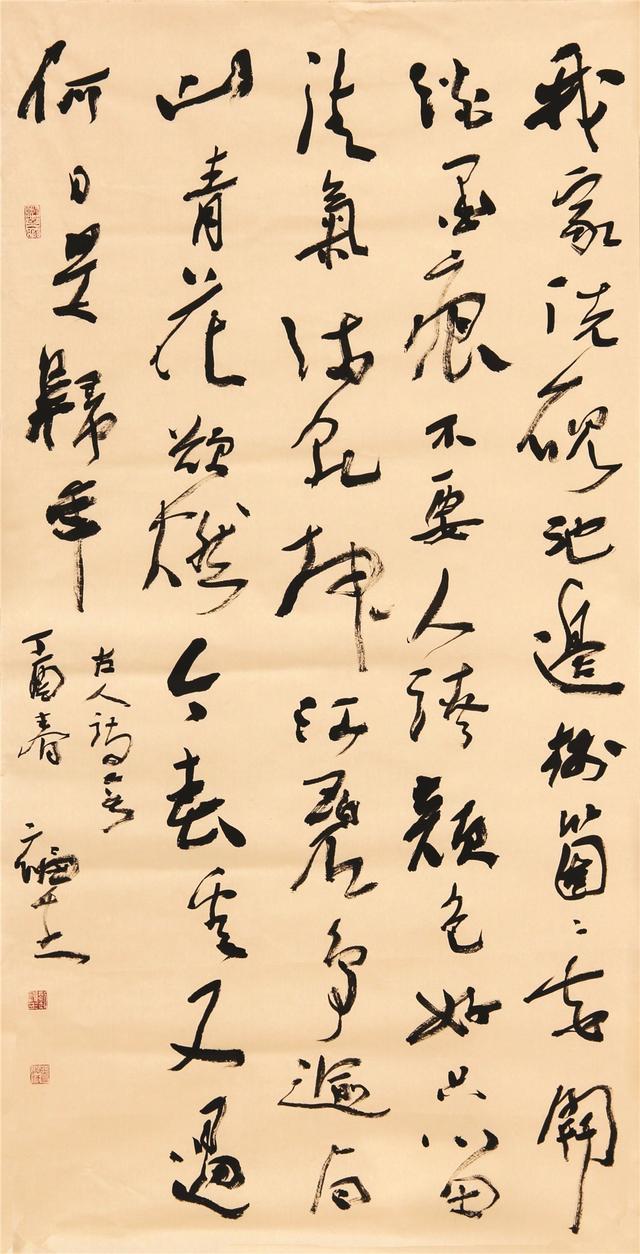 我家洗硯池邊樹箇〻花開
淡墨痕不要人誇顏色好只留
清氣滿乾坤江碧鳥逾白
山青花欲燃今春看又過
何日是歸年
古人詩二首
丁酉春